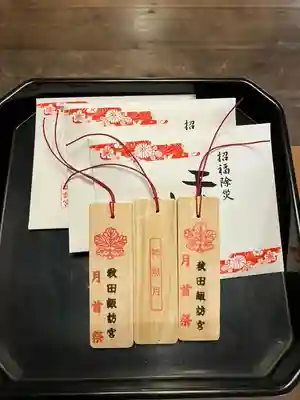 招
招福除災
秋田諏訪宮
月首祭
秋田諏訪宮
月首祭